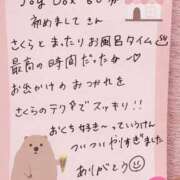 Joy Box 60分
初めまして さん
さくらと まったりお風呂タイム
最高の時間だったな〜♡
お出かけの おつかれを
さくらのテクで スッキリ!!
おくち好き〜っていうけん
ついついやりすぎました
ありがとう